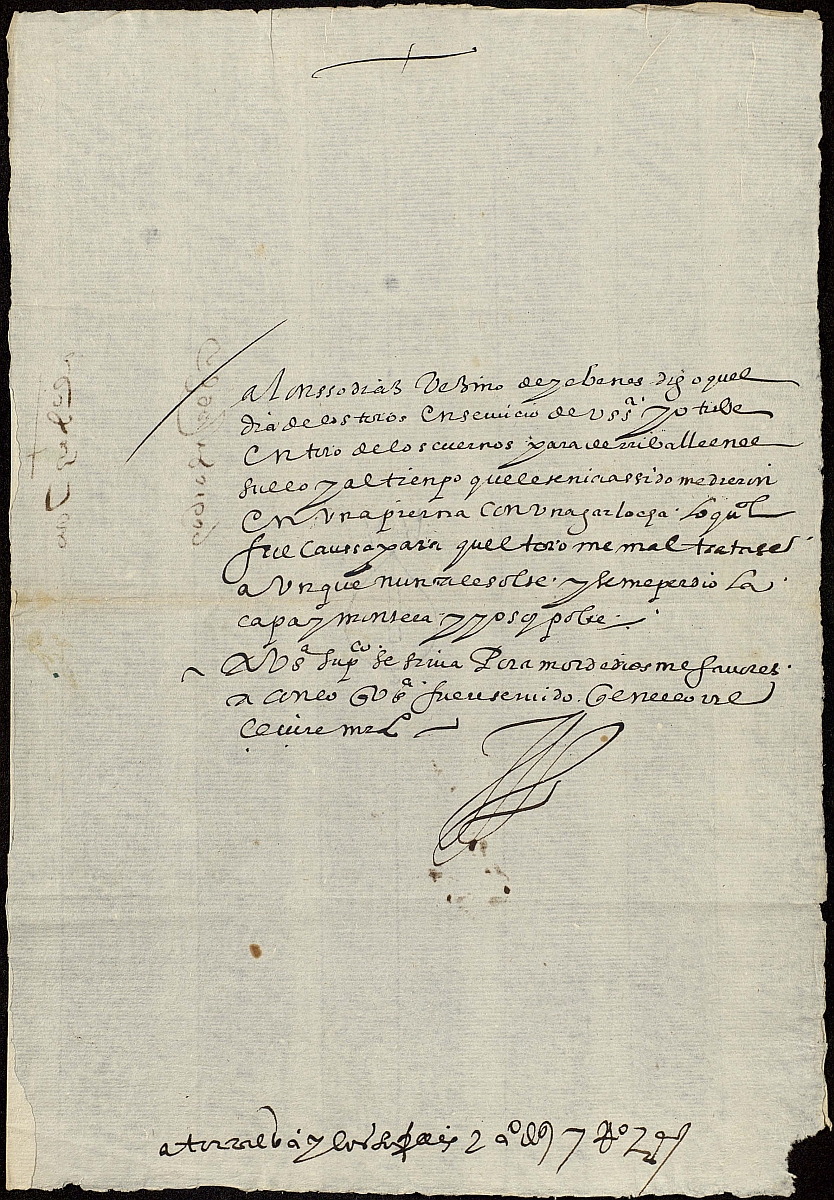 alonsso diaz Vezino de yebenes digo quel
dia de los toros En seruicio de V ssª yo tube
En toro de los cuernos para derriballe en el
suelo y al tienpo que le tenia assido me dieron
En Vna pierna con Vna garlocha lo qual
fue caussa para quel toro me mal tratase
a Vnque nunca le solte y se me perdio la
capa y montera y yo soy pobre
A V sª supco se sirua Por amor de dios me fauores
ca con lo q V sª fuere seruido q en ello rre
ceuire mrd
a torralba y los